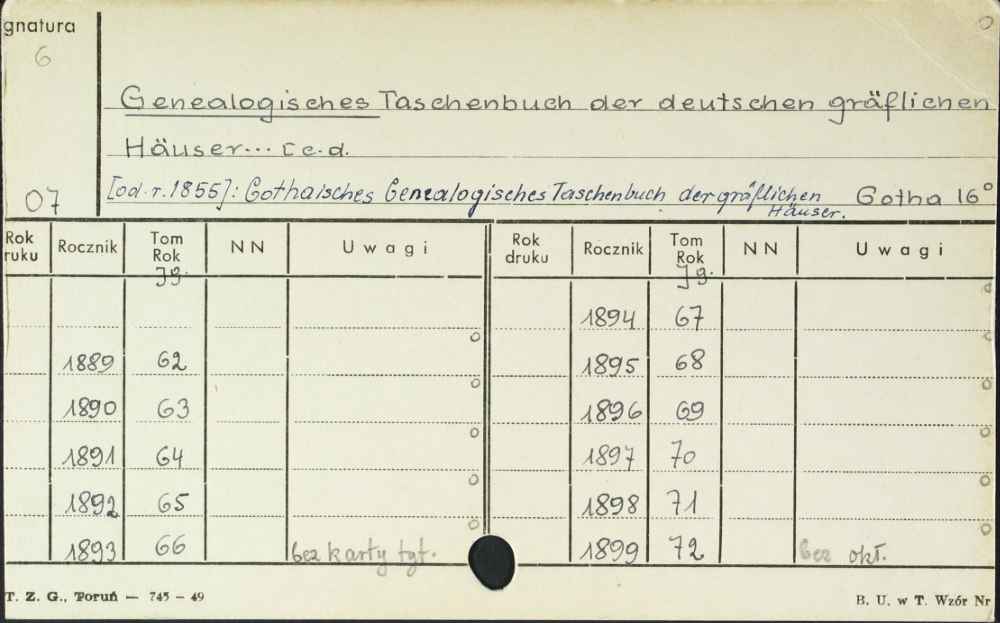 gnatura
6
Genealogisches Taschenbuch der deutschen gräflichen
Häuser... [c.d.
07
[od.r.1855]: Gothaisches Genealogisches Taschenbuch der gräflichen Gotha 16°
Häuser.
Rok ruku Rocznik Tom Rok NN Uwagi Rok druku Rocznik Tom Rok NN Uwagi
Jg. Jg.
1894 67
1889 62 1895 68
1890 63 1896 69
1891 64 1897 70
1892 65 1898 71
1893 66 bez karty tyt. 1899 72 bez okł.
T. Z. G., Toruń — 745 – 49 B. U. w T. Wzór Nr